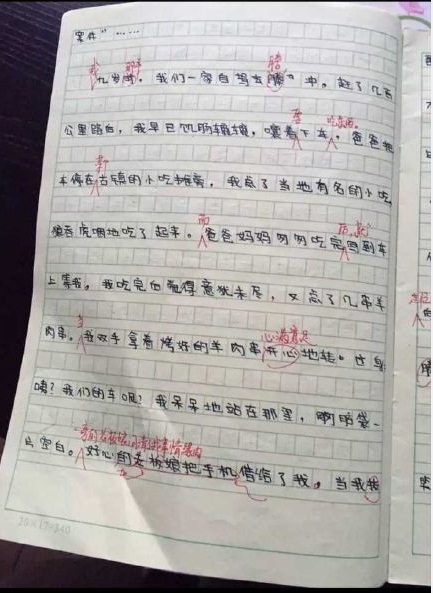 案件”……
我 那年 腾
九岁时，我们一家自驾去腾冲。赶了几百
要 吃东西
公里路后，我早已饥肠辘辘，嚷着下车。爸爸把
车停在古镇的小吃摊旁，我点了当地有名的小吃
而 后，就
狼吞虎咽地吃了起来。爸爸妈妈匆匆吃完回到车
上等我。我吃完后觉得意犹未尽，又点了几串羊
当 心满意足
肉串。我双手拿着烤好的羊肉串开心地转。过身
咦？我们的车呢？我呆呆地站在那里，脑袋一
片空白。好心的老板娘把手机借给了我。当我